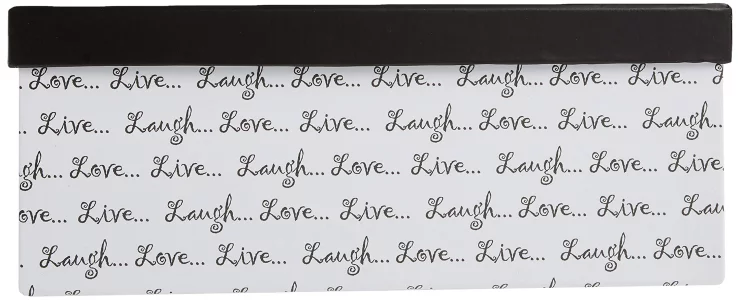 . Love... Live... Laugh... Love... Live... Laugh... Love... Live...
.. Live... Laugh... Love... Live... Laugh... Love... Live... Laugh...
gh... Love... Live... Laugh... Love... Live... Laugh... Love... Live...
ove... Live... Laugh... Love... Live... Laugh... Love... Live... Lau
. Laugh... Love... Live... Laugh... Love... Live... Laugh... Love...